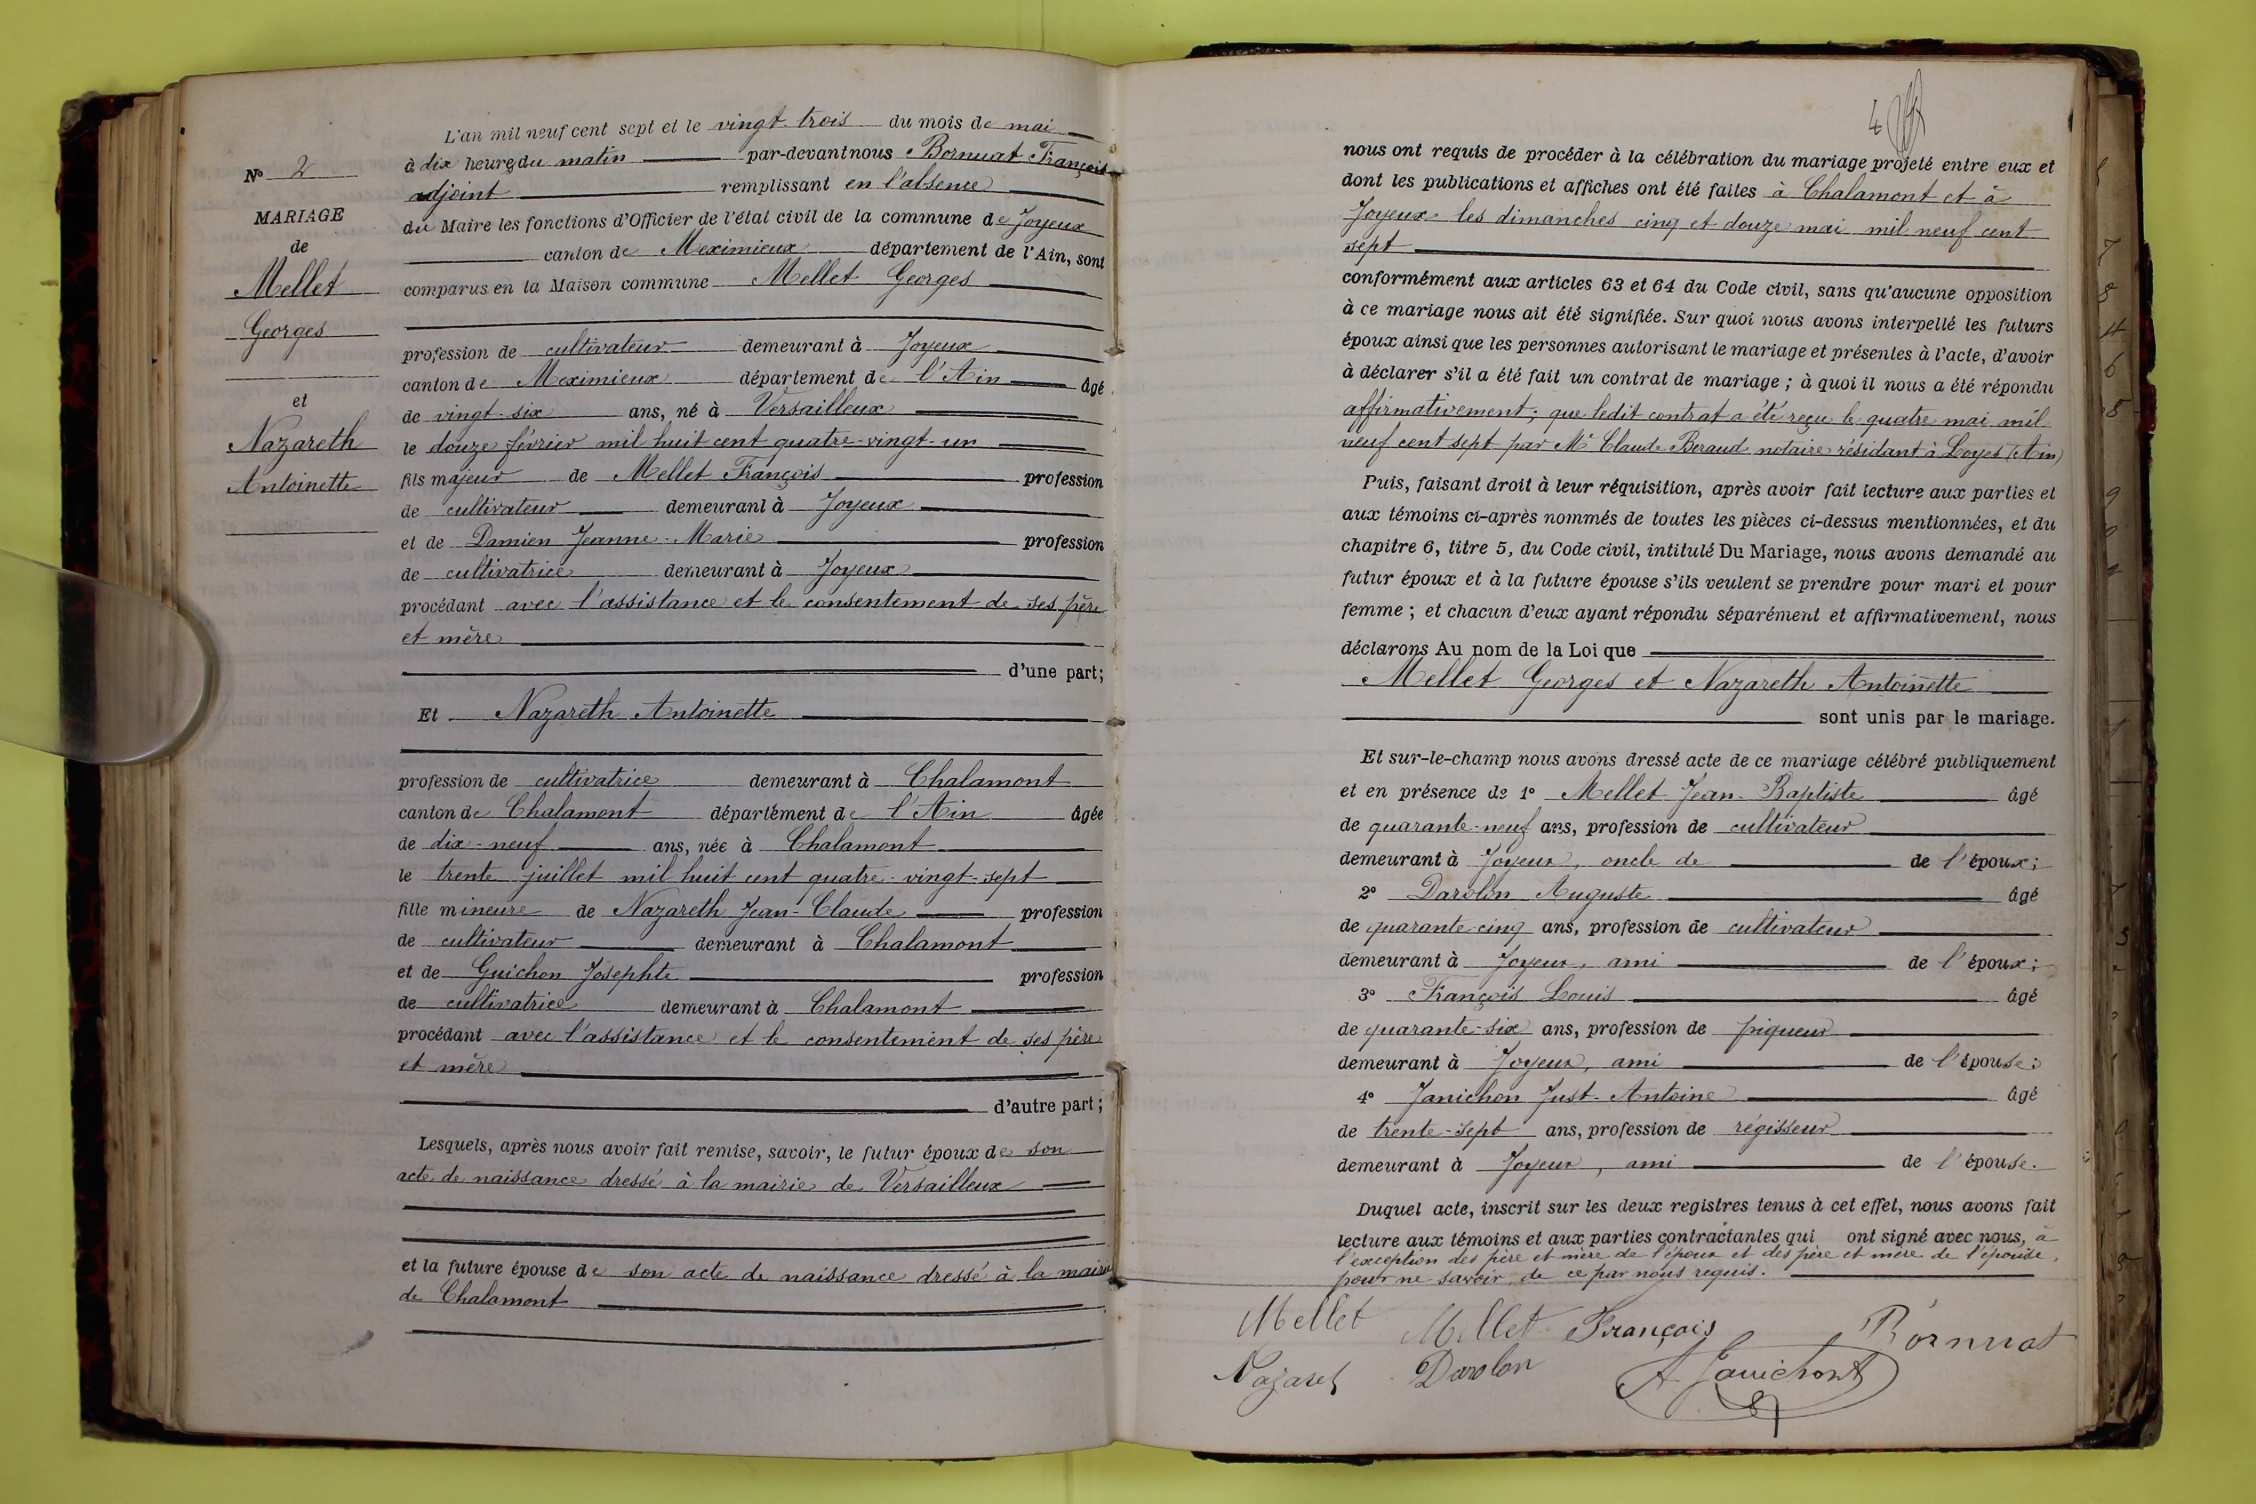 N° 2
MARIAGE
de
Mellet
Georges
et
Nazareth
Antoinette
L'an mil neuf cent sept et le vingt-trois du mois de mai
à dix heures du matin par-devant nous Bornuat François
adjoint remplissant en l'absence
du Maire les fonctions d'Officier de l'état civil de la commune de Joyeux
canton de Meximieux département de l'Ain, sont
comparus en la Maison commune Mellet Georges
profession de cultivateur demeurant à Joyeux
canton de Meximieux département de l'Ain âgé
de vingt-six ans, né à Versailleux
le douze février mil huit cent quatre-vingt-un
fils majeur de Mellet François profession
de cultivateur demeurant à Joyeux
et de Damien Jeanne-Marie profession
de cultivatrice demeurant à Joyeux
procédant avec l'assistance et le consentement de ses père
et mère
d'une part;
Et Nazareth Antoinette
profession de cultivatrice demeurant à Chalamont
canton de Chalamont département de l'Ain âgée
de dix-neuf ans, née à Chalamont
le trente juillet mil huit cent quatre-vingt-sept
fille mineure de Nazareth Jean-Claude profession
de cultivateur demeurant à Chalamont
et de Guichon Josephte profession
de cultivatrice demeurant à Chalamont
procédant avec l'assistance et le consentement de ses père
et mère
d'autre part;
Lesquels, après nous avoir fait remise, savoir, le futur époux de son
acte de naissance dressé à la mairie de Versailleux
et la future épouse de son acte de naissance dressé à la mairie
de Chalamont
4
nous ont requis de procéder à la célébration du mariage projeté entre eux et
dont les publications et affiches ont été faites à Chalamont et à
Joyeux les dimanches cinq et douze mai mil neuf cent
sept
conformément aux articles 63 et 64 du Code civil, sans qu'aucune opposition
à ce mariage nous ait été signifiée. Sur quoi nous avons interpellé les futurs
époux ainsi que les personnes autorisant le mariage et présentes à l'acte, d'avoir
à déclarer s'il a été fait un contrat de mariage; à quoi il nous a été répondu
affirmativement; que ledit contrat a été reçu le quatre mai mil
neuf cent sept par Me Claude Beraud notaire résidant à Loyes (Ain)
Puis, faisant droit à leur réquisition, après avoir fait lecture aux parties et
aux témoins ci-après nommés de toutes les pièces ci-dessus mentionnées, et du
chapitre 6, titre 5, du Code civil, intitulé Du Mariage, nous avons demandé au
futur époux et à la future épouse s'ils veulent se prendre pour mari et pour
femme; et chacun d'eux ayant répondu séparément et affirmativement, nous
déclarons Au nom de la Loi que
Mellet Georges et Nazareth Antoinette
sont unis par le mariage.
Et sur-le-champ nous avons dressé acte de ce mariage célébré publiquement
et en présence de 1° Mellet Jean-Baptiste âgé
de quarante-neuf ans, profession de cultivateur
demeurant à Joyeux, oncle de de l'époux;
2° Darolon Auguste âgé
de quarante-cinq ans, profession de cultivateur
demeurant à Joyeux, ami de l'époux;
3° François Louis âgé
de quarante-six ans, profession de piqueur
demeurant à Joyeux, ami de l'épouse;
4° Janichon Just-Antoine âgé
de trente-sept ans, profession de régisseur
demeurant à Joyeux, ami de l'épouse.
Duquel acte, inscrit sur les deux registres tenus à cet effet, nous avons fait
lecture aux témoins et aux parties contractantes qui ont signé avec nous, à
l'exception des père et mère de l'époux et des père et mère de l'épouse,
pour ne savoir, de ce par nous requis.
Mellet Mellet François Bornuat
Nazaret Darolon A. Janichon